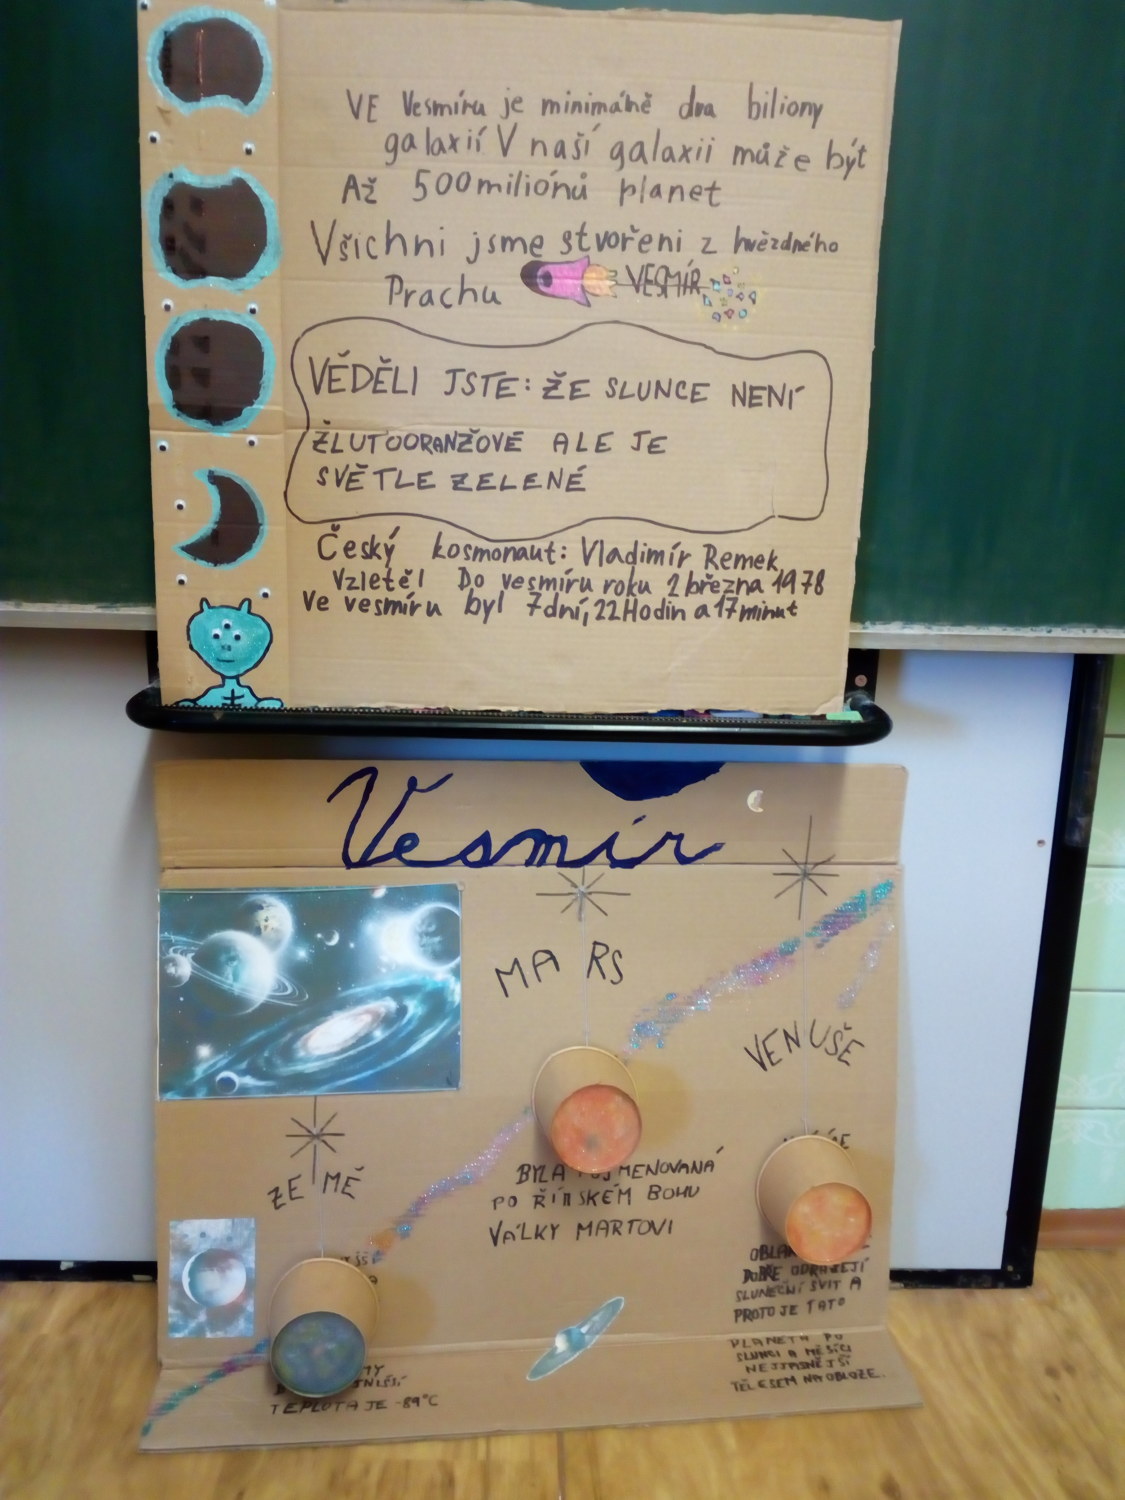 VE Vesmíru je minimálně dva biliony
galaxií V naší galaxii může být
Až 500miliónů planet
Všichni jsme stvořeni z hvězdného
Prachu
VESMÍR
VĚDĚLI JSTE: ŽE SLUNCE NENÍ
ŽLUTOORANŽOVÉ ALE JE
SVĚTLE ZELENÉ
Český kosmonaut: Vladimír Remek
Vzletěl Do vesmíru roku 2 března 1978
Ve vesmíru byl 7dní, 22Hodin a 17minut
Vesmír
MARS
VENUŠE
ZEMĚ
BYLA MENOVANÁ
PO ŘÍMSKÉM BOHU
VÁLKY MARTOVI
DOBŘE ODRÁŽEJÍ
SLUNEČNÍ SVIT A
PROTO JE TATO
PLANETA PO
SLUNCI A MĚSÍCI
NEJJASNĚJŠÍ
TĚLESEM NA OBLOZE.
TEPLOTA JE -89°C